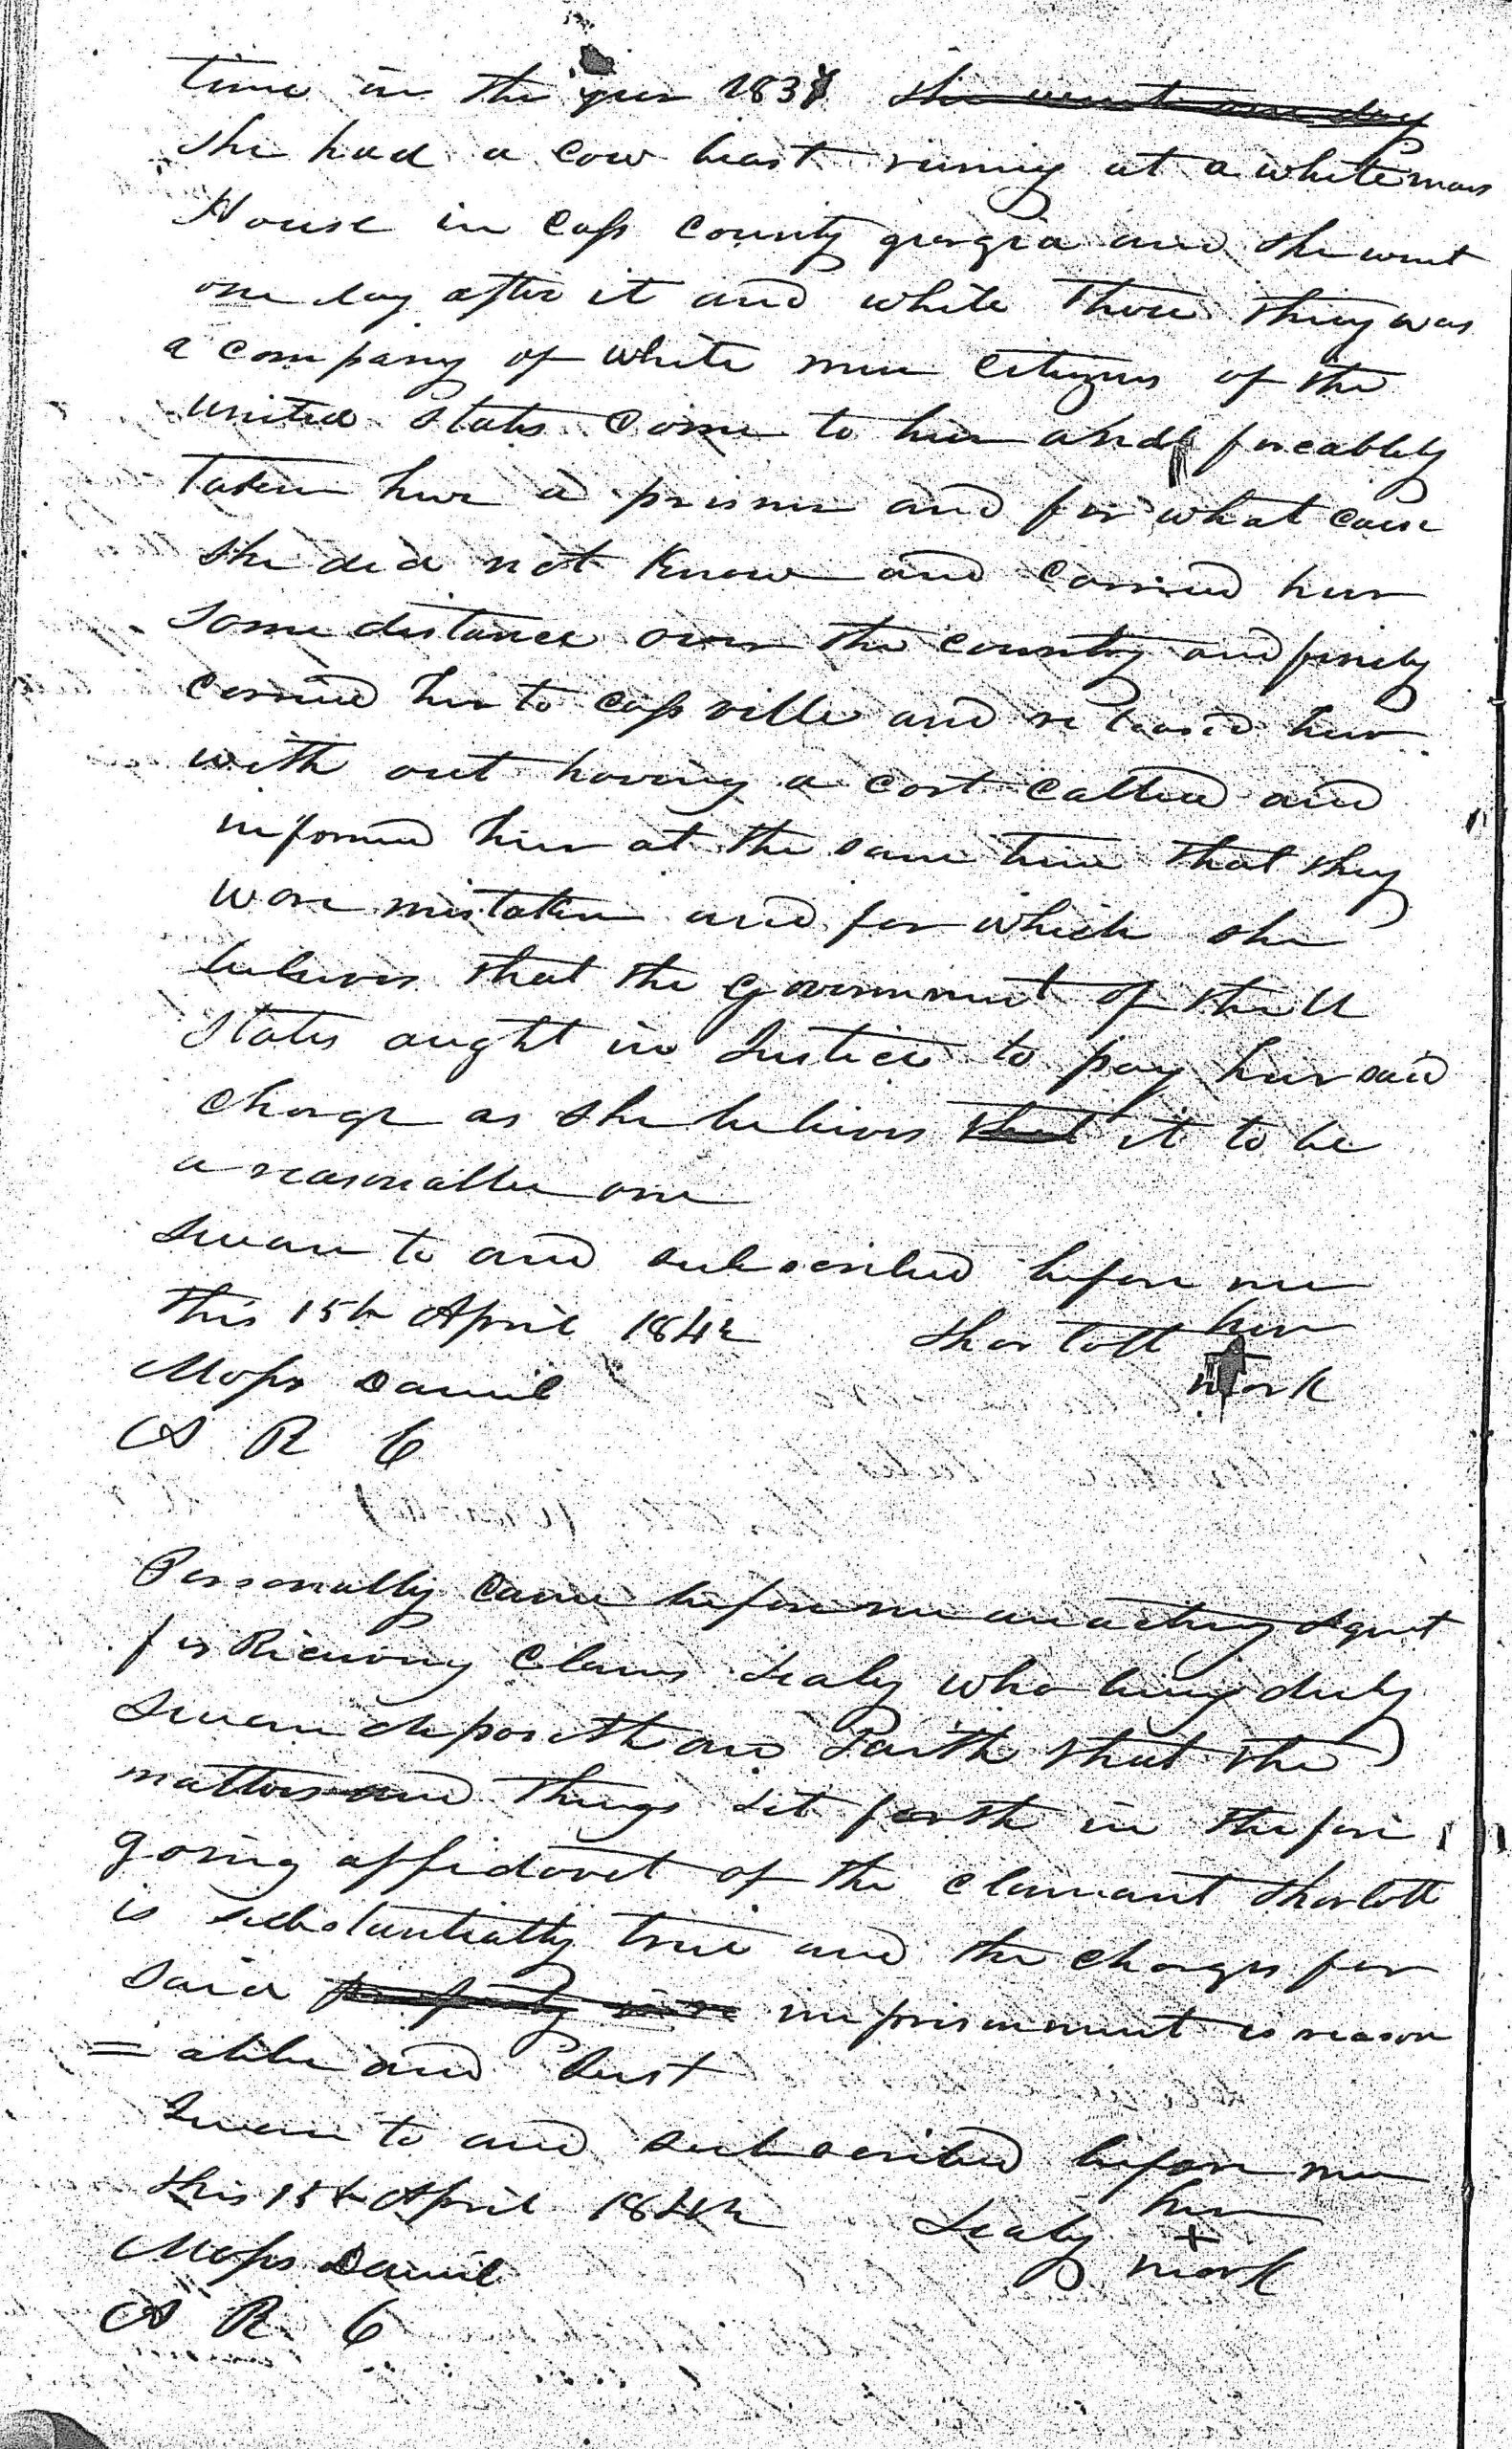 time in the year 1837 she went one day
she had a cow beast runing at a whitemans
House in Cass County georgia and she went
one day after it and while there thiey was
a company of white men Citizens of the
united States Come to her and forceably
taken her a prisner and for what cause
she did not Know and carried her
Some distance over the country and finely
carried her to Cassville and released her
with out having a cort called and
informed her at the same time that they
ware mistaken and for which she
believes that the government of the U
States aught in Justice to pay her said
Charge as she believes that it to be
a reasonable one
Swarn to and subscribed before me
this 15th April 1842 Sharlott her
Moses Daniel mark
A R C
Personally came before me an acting Agent
for Rieceiving Claims Sealy who being duly
Swarn deposeth and Saith that the
matters and things Set forth in the fore
going affidavet of the Claimant Sharlott
is substantially true and the Charges for
said property were imprisonment is reason
= able and Just
Swarn to and subscribed before me
this 15th April 1842 Sealy her
Moses Daniel x mark
A R C